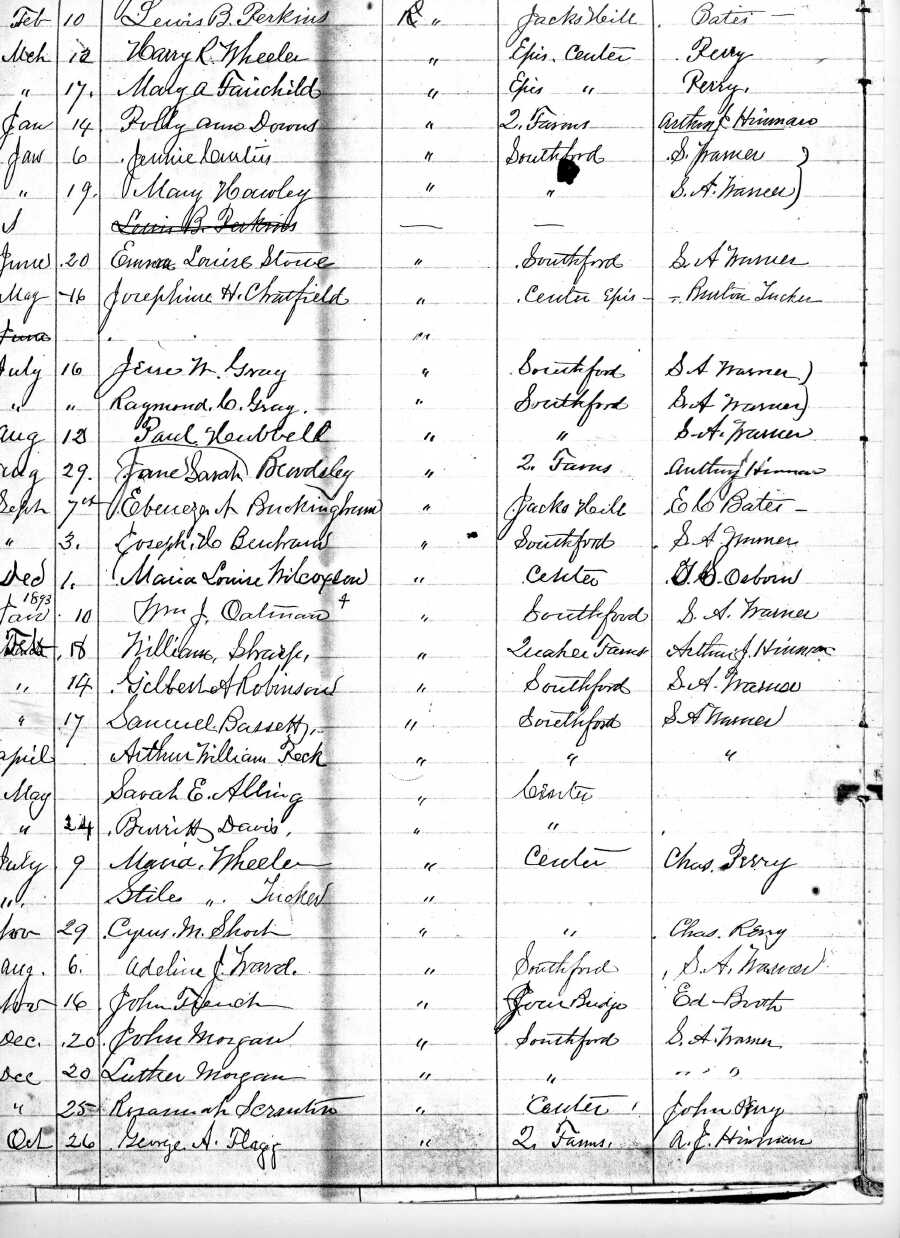 Feb 10 Lewis B. Perkins R " Jacks Hill Bates
Mch 12 Harry R. Wheeler " Epis. Center Perry
" 17. Mary A Fairchild " Epis " Perry.
Jan 14. Polly Ann Downs " 2. Farms Arthur J Hinman
Jan 6 Jennie Curtis " Southford S. Warner )
" 19. Mary Hawley " " S. A. Warner )
Lewis B. Perkins — —
June 20 Emma Louise Stone " Southford S. A Warner
May 16 Josephine H. Chatfield " Center Epis - Burton Tucker
June "
July 16 Jesse W. Gray " Southford S A Warner )
" " Raymond. C. Gray. " Southford S. A Warner )
Aug 12 Paul Hubbell " " S. A. Warner
Aug 29. Jane Sarah Beardsley " 2. Farms Arthur J Hinman
Sept 7th Ebenezer Buckingham " Jacks Hill E C Bates -
" 3. Joseph. Bertram " Southford S A
Dec 1. Maria Louise Wilcoxson " Center Osborn
Jan 1893 10 Wm J. Oatman " Southford S. A. Warner
Feb 18 William Sharp, " Quaker Farms Arthur J. Hinman
" 14 Gilbert A Robinson " Southford S. A. Warner
" 17 Samuel Bassett, " Southford S A Warner
April Arthur William Peck " " "
May Sarah E. Alling " Center
" 24 Burritt Davis. " "
July 9 Maria. Wheeler " Center Chas. Perry
". Stiles ". Tucker "
Nov 29 Cyrus. M. Short " " Chas. Perry
Aug. 6. Adeline J. Ward. " Southford S. A. Warner
Nov 16 John French " Bridge Ed Booth
Dec. 20 John Morgan " Southford S. A. Warner
Dec 20 Luther Morgan " " " "
" 25 Rosannah Scranton " Center John Perry
Oct 26 George A. Flagg " 2. Farms. A. J. Hinman